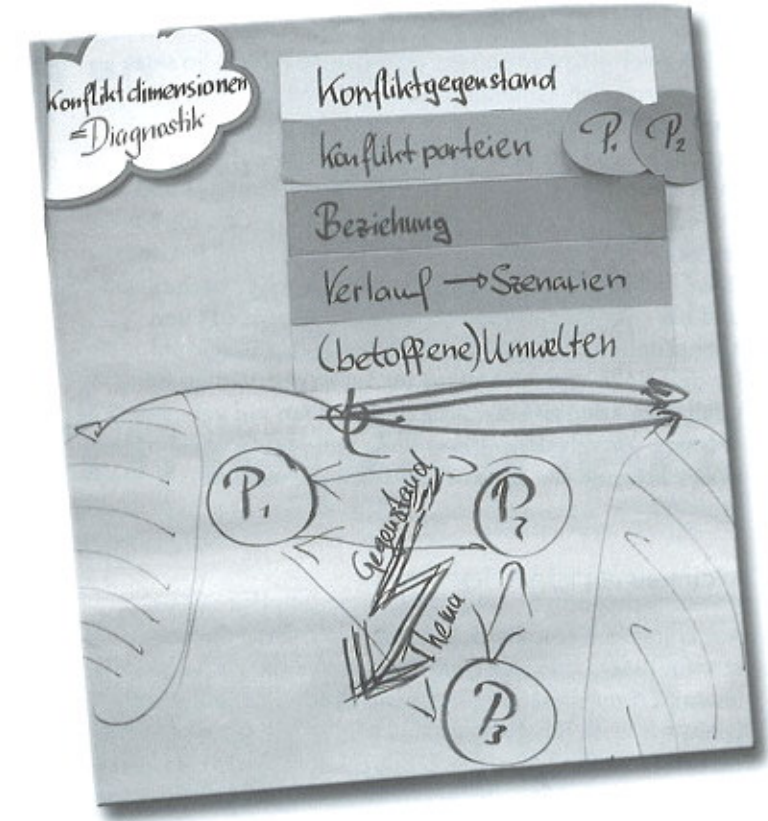 Konfliktdimensionen
=Diagnostik
Konfliktgegenstand
Konfliktparteien P1 P2
Beziehung
Verlauf → Szenarien
(betoffene) Umwelten
P1
Gegenstand
P2
Thema
P3